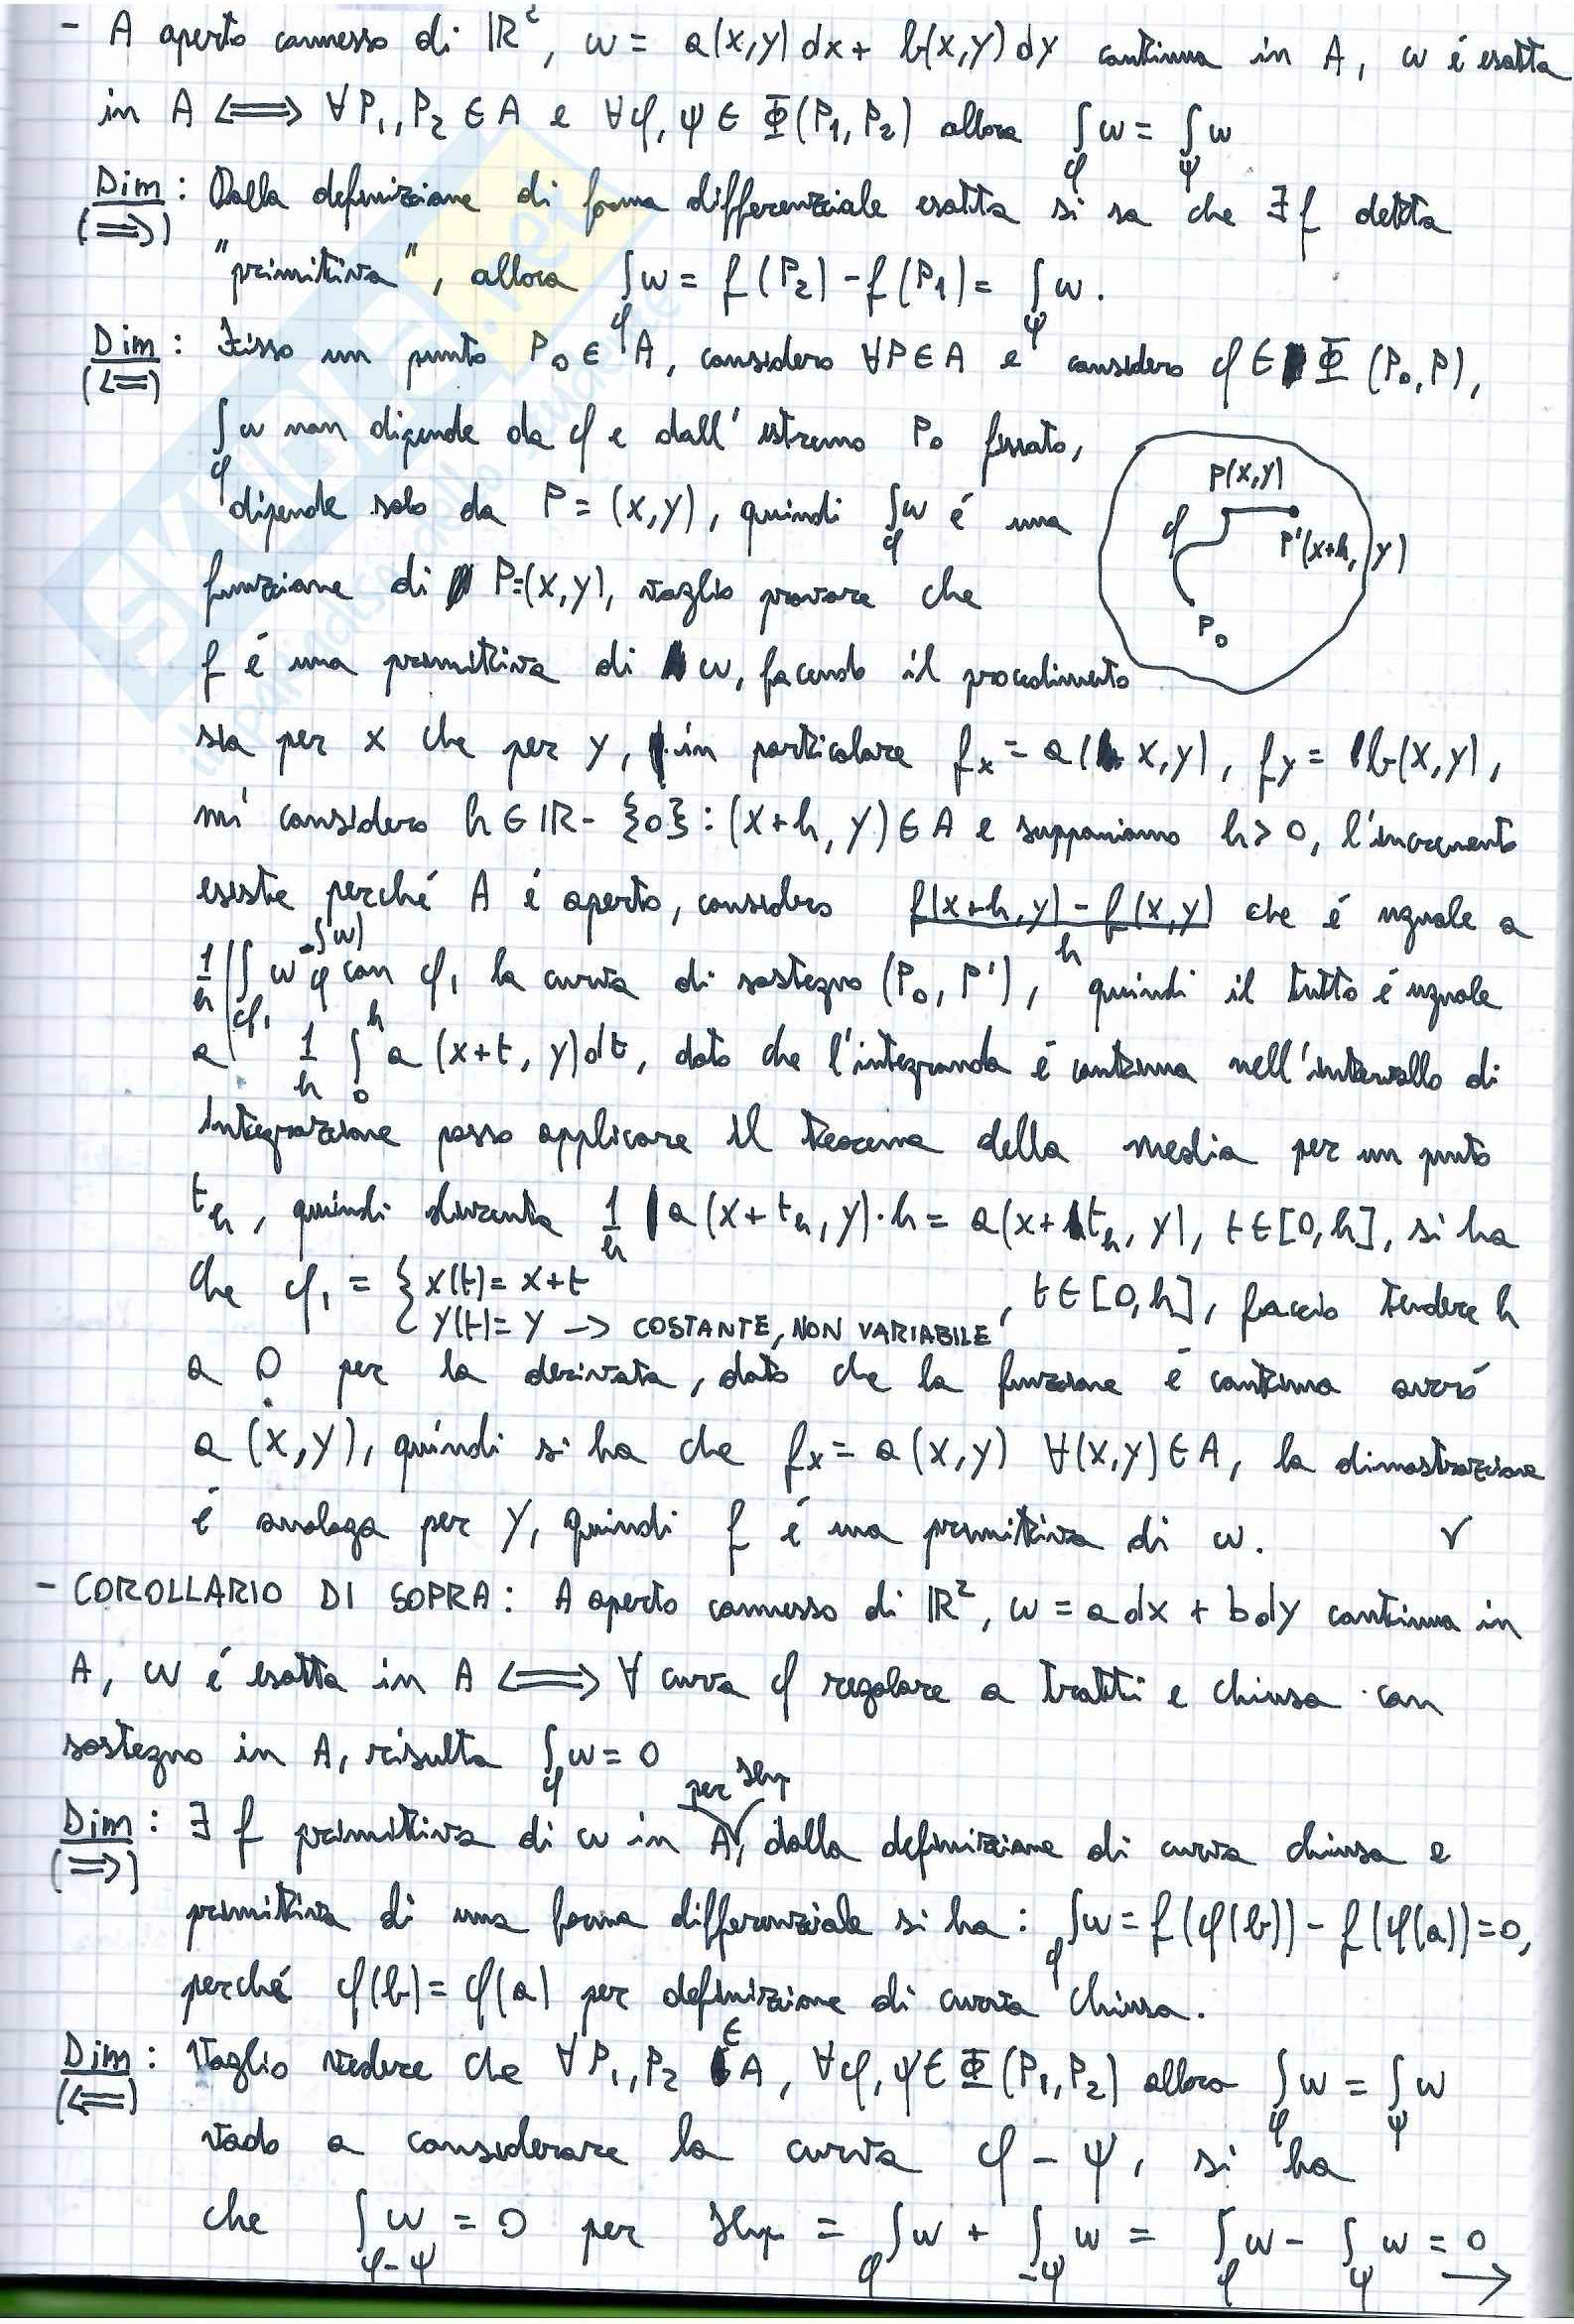 - A aperto connesso di ℝ², ω = a(x,y) dx + b(x,y) dy continua in A, ω é esatta
in A <=> ∀P₁, P₂ ∈ A e ∀φ, ψ ∈ Φ(P₁, P₂) allora ∫φ ω = ∫ψ ω
Dim (=>): Dalla definizione di forma differenziale esatta si sa che ∃ f detta
"primitiva", allora ∫φ ω = f(P₂) - f(P₁) = ∫ψ ω.
Dim (<=): Fisso un punto P₀ ∈ A, considero ∀P ∈ A e considero φ ∈ Φ (P₀, P),
∫φ ω non dipende da φ e dall'estremo P₀ fissato,
dipende solo da P = (x,y), quindi ∫φ ω é una
funzione di P=(x,y), voglio provare che
f é una primitiva di ω, facendo il procedimento
sia per x che per y, in particolare fx = a(x,y), fy = b(x,y),
mi considero h ∈ ℝ - {0} : (x+h, y) ∈ A e supponiamo h > 0, l'incremento
esiste perché A é aperto, considero f(x+h,y) - f(x,y) / h che é uguale a
1/h (∫φ₁ ω - ∫φ ω) con φ₁ la curva di sostegno (P₀, P'), quindi il tutto é uguale
a 1/h ∫₀ʰ a (x+t, y)dt, dato che l'integranda é continua nell'intervallo di
integrazione posso applicare il teorema della media per un punto
tₕ, quindi diventa 1/h a(x+tₕ, y)·h = a(x+tₕ, y), t∈[0,h], si ha
che φ₁ = { x(t) = x+t
y(t) = y -> COSTANTE, NON VARIABILE , t∈[0,h], faccio tendere h
a 0 per la derivata, dato che la funzione é continua avró
a (x,y), quindi si ha che fx = a(x,y) ∀(x,y) ∈ A, la dimostrazione
é analoga per y, quindi f é una primitiva di ω. √
P(x,y)
φ
P'(x+h, y)
P₀
- COROLLARIO DI SOPRA: A aperto connesso di ℝ², ω = a dx + b dy continua in
A, ω é esatta in A <=> ∀ curva φ regolare a tratti e chiusa con
sostegno in A, risulta ∫φ ω = 0
Dim (=>): ∃ f primitiva di ω in A per Hp, dalla definizione di curva chiusa e
primitiva di una forma differenziale si ha: ∫φ ω = f(φ(b)) - f(φ(a)) = 0,
perché φ(b) = φ(a) per definizione di curva chiusa.
Dim (<=): Voglio vedere che ∀P₁, P₂ ∈ A, ∀φ, ψ ∈ Φ(P₁, P₂) allora ∫φ ω = ∫ψ ω
vado a considerare la curva φ - ψ, si ha
che ∫φ-ψ ω = 0 per Hp = ∫φ ω + ∫-ψ ω = ∫φ ω - ∫ψ ω = 0 ->
SKUOLA.net